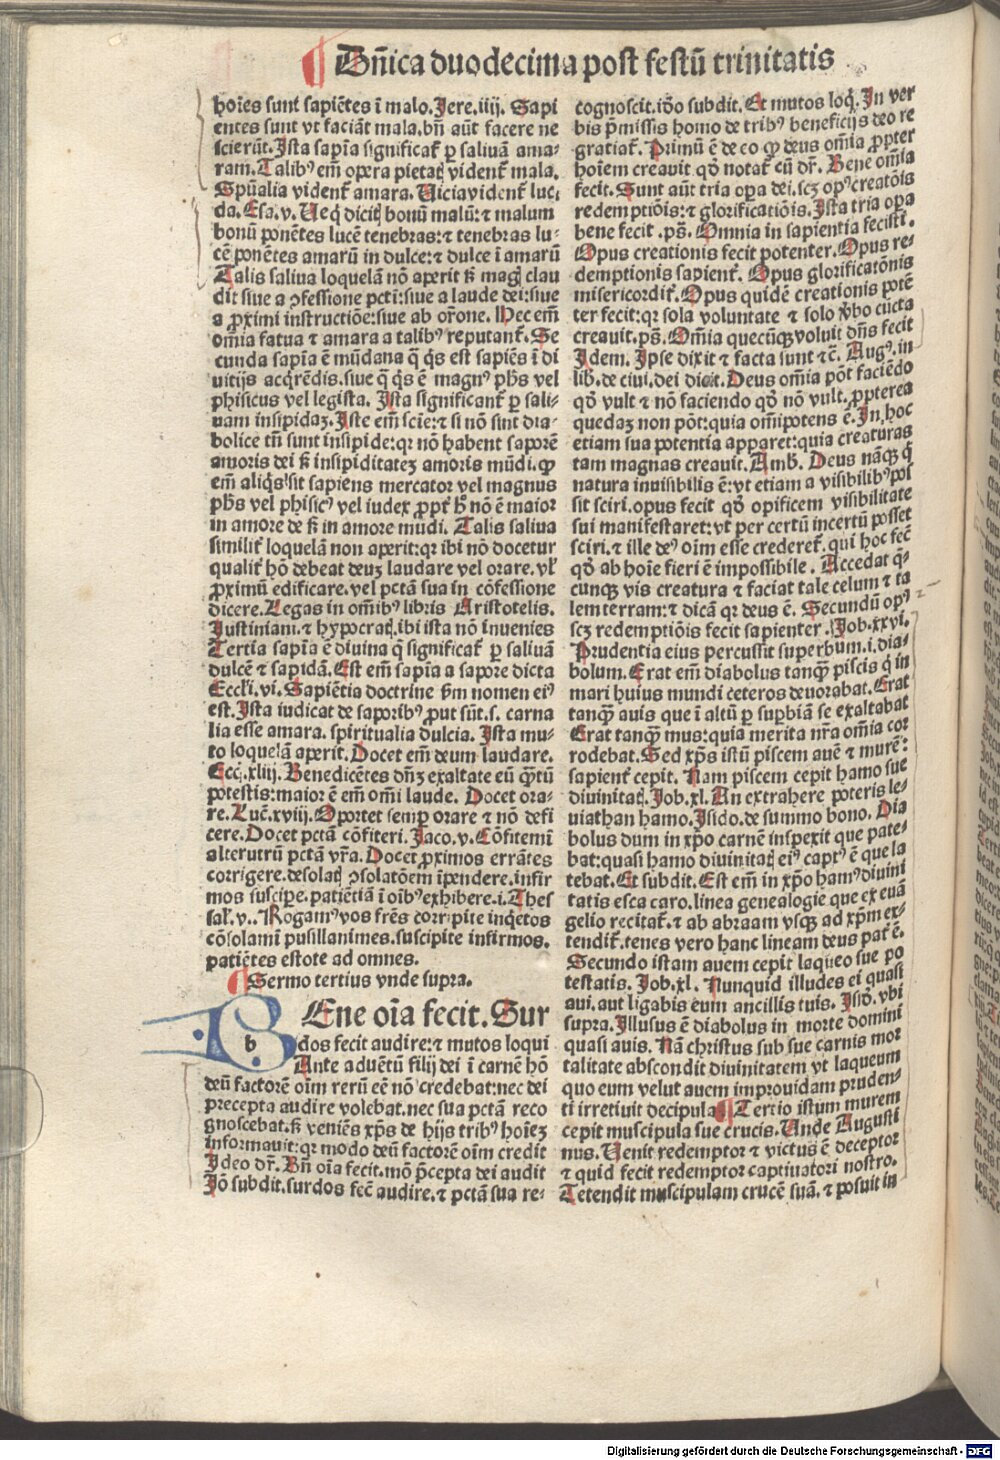 Dñica duodecima post festū trinitatis
hoīes sunt sapiētes ī malo. Jere. iiij. Sapi
entes sunt vt faciāt mala. bñ aūt facere ne
scierūt. Ista sapīa significat̄ ꝑ saliuā ama-
ram. Talibꝰ em̄ opera pietat̄ vident̄ mala.
Spūalia vident̄ amara. Uicia vident̄ luci-
da. Esa. v. Ue q̄ dicit̄ bonū malū: ⁊ malum
bonū ponētes lucē tenebras: ⁊ tenebras lu-
cē ponētes amarū in dulce: ⁊ dulce ī amarū
Talis saliua loquelā nō aperit sꝫ maḡ clau
dit siue a ꝯfessione pctī: siue a laude dei: siue
a ꝓximi instructiōe: siue ab or̄one. Hec em̄
om̄ia fatua ⁊ amara a talibꝰ reputant̄. Se
cunda sapīa ē mūdana q̄ q̄s est sapiēs ī di
uitijs acq̄rēdis. siue q̄ q̄s ē magnꝰ phs̄ vel
phisicus vel legista. Ista significant̄ ꝑ sali-
uam insipidaꝫ. Iste em̄ scie: ⁊ si nō sint dia-
bolice tn̄ sunt insipide: qꝛ nō habent saporē
amoris dei sꝫ insipiditateꝫ amoris mūdi. qꝫ
em̄ aliq̄s sit sapiens mercator vel magnus
phs̄ vel phisicꝰ vel iudex ꝓpt̄ h̄ nō ē maior
in amore de sꝫ in amore mūdi. Talis saliua
similit̄ loquelā non aperit: qꝛ ibi nō docetur
qualit̄ hō debeat deuꝫ laudare vel orare. vl̄
ꝓximū edificare. vel pctā sua in cōfessione
dicere. Legas in om̄ibꝰ libris Aristotelis.
Justiniani. ⁊ hypocrat̄. ibi ista nō inuenies
Tertia sapīa ē diuina q̄ significat̄ ꝑ saliuā
dulcē ⁊ sapidā. Est em̄ sapīa a sapore dicta
Eccli. vi. Sapiētia doctrine sm̄ nomen eiꝰ
est. Ista iudicat de saporibꝰ ꝓut sūt. s. carna
lia esse amara. spiritualia dulcia. Ista mu-
to loquelā aperit. Docet em̄ deum laudare.
Ecci. xliij. Benedicētes dn̄ꝫ exaltate eū q̄tū
potestis: maior ē em̄ om̄i laude. Docet ora-
re. Luc̄. xviij. Oportet semꝑ orare ⁊ nō defi
cere. Docet pctā cōfiteri. Jaco. v. Cōfitemī
alterutrū pctā vr̄a. Docet ꝓximos errātes
corrigere. desolat̄ ꝯsolatōem īpendere. infir
mos suscipe. patiētiā ī oībꝰ exhibere. i. Thes
sal̄. v.. Rogamꝰ vos fr̄es corripite inq̄etos
cōsolamī pusillanimes. suscipite infirmos.
patiētes estote ad omnes.
¶ Sermo tertius vnde supra.
b
BEne oīa fecit. Sur
dos fecit audire: ⁊ mutos loqui
Ante aduētū filij dei ī carnē hō
deū factorē oīm rerū eē nō credebat: nec dei
precepta audire volebat. nec sua pctā reco
gnoscebat. sꝫ veniēs xp̄s de hijs tribꝰ hoīeꝫ
informauit: qꝛ modo deū factorē oīm credit
Ideo dr̄. Bn̄ oīa fecit. mō p̄cepta dei audit
Iō subdit. surdos fec̄ audire. ⁊ pctā sua re-
cognoscit. iō subdit. Et mutos loq̄. In ver
bis p̄missis homo de tribꝰ beneficijs deo re
gratiat̄. Primū ē de eo qꝫ deus om̄ia ꝓpter
hoīem creauit qō notat̄ cū dr̄. Bene om̄ia
fecit. Sunt aūt tria oꝑa dei. scꝫ opꝰ creatōis
redemptiōis: ⁊ glorificatiōis. Ista tria oꝑa
bene fecit. ps̄. Omnia in sapientia fecisti.
Opus creationis fecit potenter. Opus re-
demptionis sapient̄. Opus glorificatōnis
misericordit̄. Opus quidē creationis potē
ter fecit: qꝛ sola voluntate ⁊ solo v̄bo cūcta
creauit. ps̄. Om̄ia quecūqꝫ voluit dn̄s fecit
Idem. Ipse dixit ⁊ facta sunt ⁊c̄. Augꝰ. in
lib̄. de ciui. dei dicit. Deus om̄ia pōt faciēdo
qō vult ⁊ nō faciendo qō nō vult. ꝓpterea
quedaꝫ non pōt: quia om̄ipotens ē. In hoc
etiam sua potentia apparet: quia creaturas
tam magnas creauit. Amb̄. Deus nāqꝫ q̄
natura inuisibilis ē: vt etiam a visibilibꝰ pos
sit sciri. opus fecit qō opificem visibilitate
sui manifestaret: vt per certū incertū posset
sciri. ⁊ ille deꝰ oīm esse crederet̄. qui hoc fec̄
qō ab hoīe fieri ē impossibile. Accedat q̄-
cunqꝫ vis creatura ⁊ faciat tale celum ⁊ ta
lem terram: ⁊ dicā qꝛ deus ē. Secundū opꝰ
scꝫ redemptiōis fecit sapienter. Job. xxvi.
Prudentia eius percussit superbum. i. dia-
bolum. Erat em̄ diabolus tanqꝫ piscis q̄ in
mari huius mundi ceteros deuorabat. Erat
tanqꝫ auis que ī altū ꝑ suꝑbiā se exaltabat
Erat tanqꝫ mus: quia merita nr̄a om̄ia cor
rodebat. Sed xp̄s istū piscem auē ⁊ murē:
sapient̄ cepit. Nam piscem cepit hamo sue
diuinitat̄. Job. xl. An extrahere poteris le-
uiathan hamo. Isido. de summo bono. Dia
bolus dum in xp̄o carnē inspexit que pate-
bat: quasi hamo diuinitat̄ eiꝰ captꝰ ē que la
tebat. Et subdit. Est em̄ in xp̄o hamꝰ diuini
tatis esca caro. linea genealogie que ex euā
gelio recitat̄. ⁊ ab abraam vsqꝫ ad xp̄m ex-
tendit̄. tenes vero hanc lineam deus pat̄ ē.
Secundo istam auem cepit laqueo sue po
testatis. Job. xl. Nunquid illudes ei quasi
aui. aut ligabis eum ancillis tuis. Isō. vbi
supra. Illusus ē diabolus in morte domini
quasi auis. Nā christus sub sue carnis mor
talitate abscondit diuinitatem vt laqueum
quo eum velut auem improuidam pruden-
ti irretiuit decipula. ¶ Tertio istum murem
cepit muscipula sue crucis. Unde Augusti
nus. Uenit redemptor ⁊ victus ē deceptor
⁊ quid fecit redemptor captiuatori nostro.
Tetendit muscipulam crucē suā. ⁊ posuit in
Digitalisierung gefördert durch die Deutsche Forschungsgemeinschaft - DFG